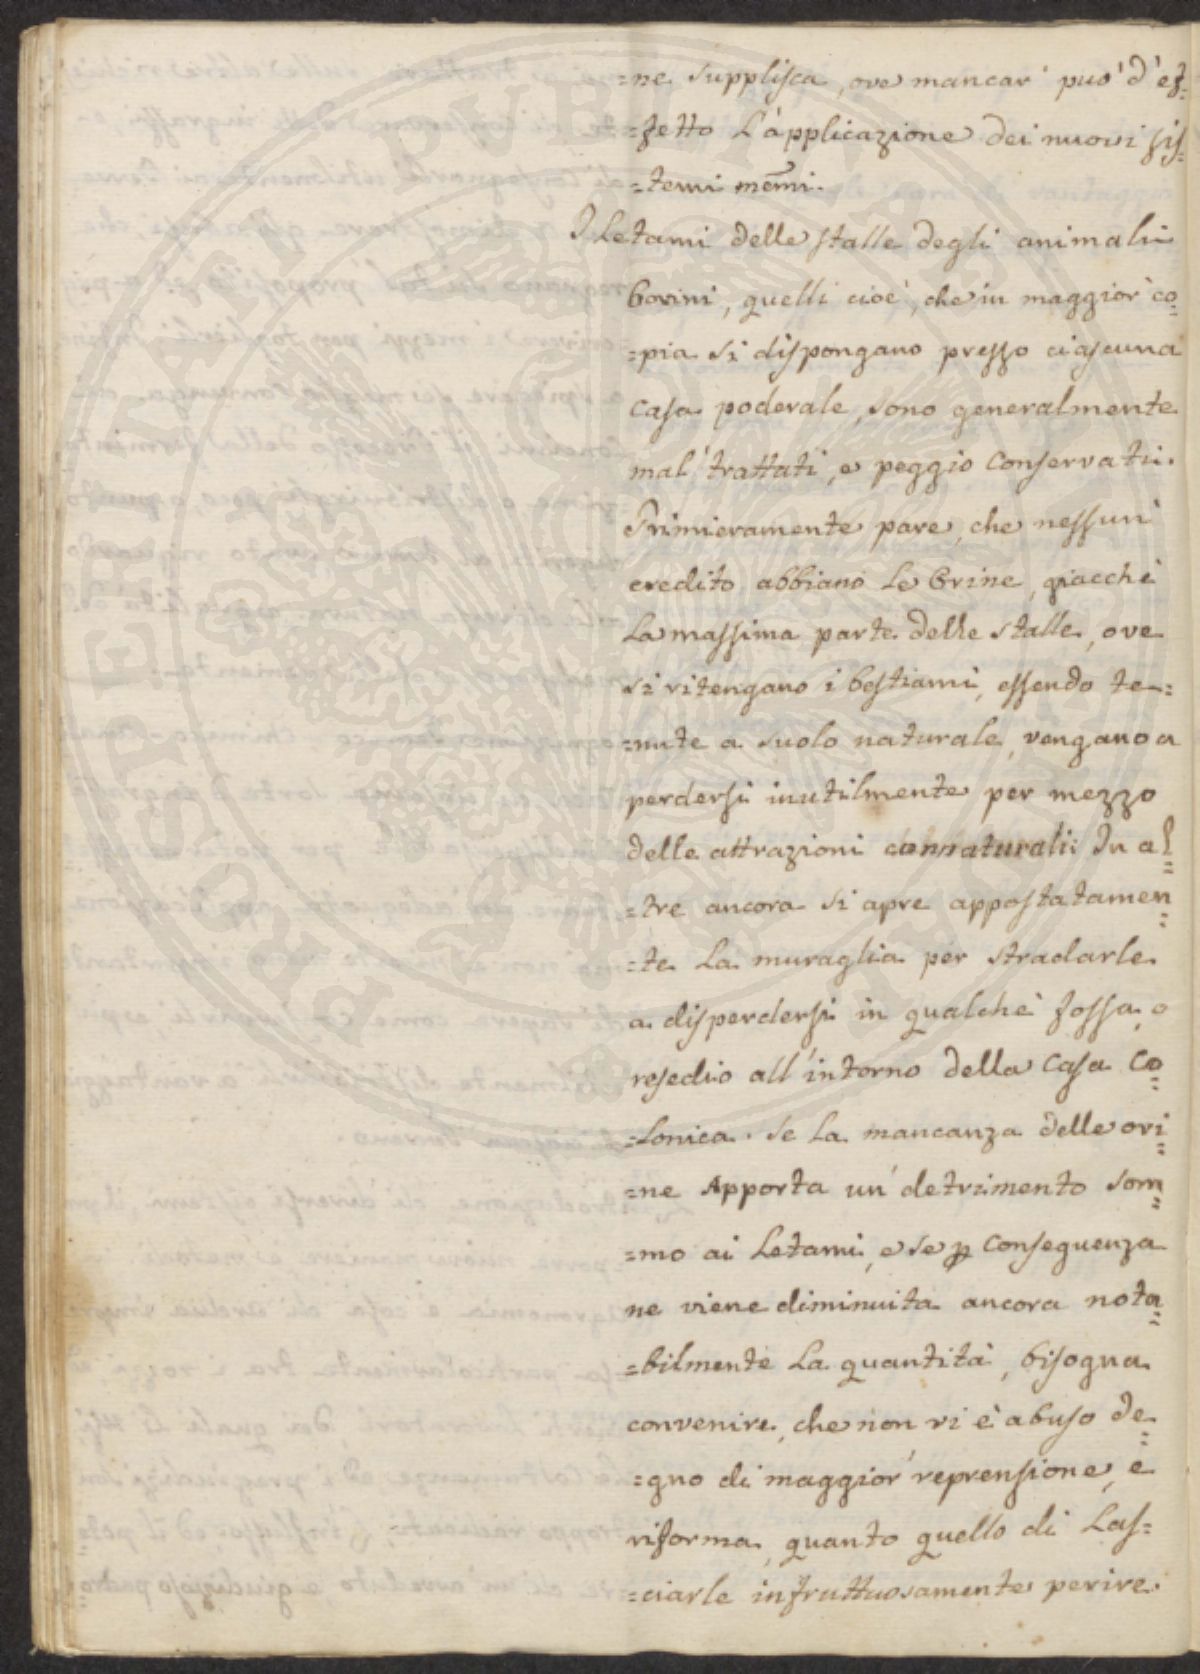 =ne supplisca, ove mancar' può d'ef=
=fetto L'applicazione dei nuovi sis=
=temi mem̃i.
I Letami delle stalle degli animali
bovini, quelli cioè, che in maggior' co=
=pia si dispongano presso ciascuna
casa poderale, sono generalmente
mal' trattati, e peggio conservati.
Primieramente pare, che nessun'
credito abbiano Le Orine, giacchè
La massima parte delle stalle, ove
si ritengano i bestiami, essendo te=
=nute a suolo naturale, vengano a
perdersi inutilmente per mezzo
delle attrazioni connaturali: In al=
=tre ancora si apre appostatamen=
=te La muraglia per stradarle
a disperdersi in qualche fossa, o
resedio all'intorno della casa Co=
=Lonica. Se La mancanza delle ori=
=ne Apporta un' detrimento som=
=mo ai Letami, e se p conseguenza
ne viene diminuita ancora nota=
=bilmente La quantità, bisogna
convenire, che non vi è abuso de=
=gno di maggior' reprensione, e
riforma, quanto quello di Las=
=ciarle infruttuosamente perire.
PROSPERITATI PUBLICAE